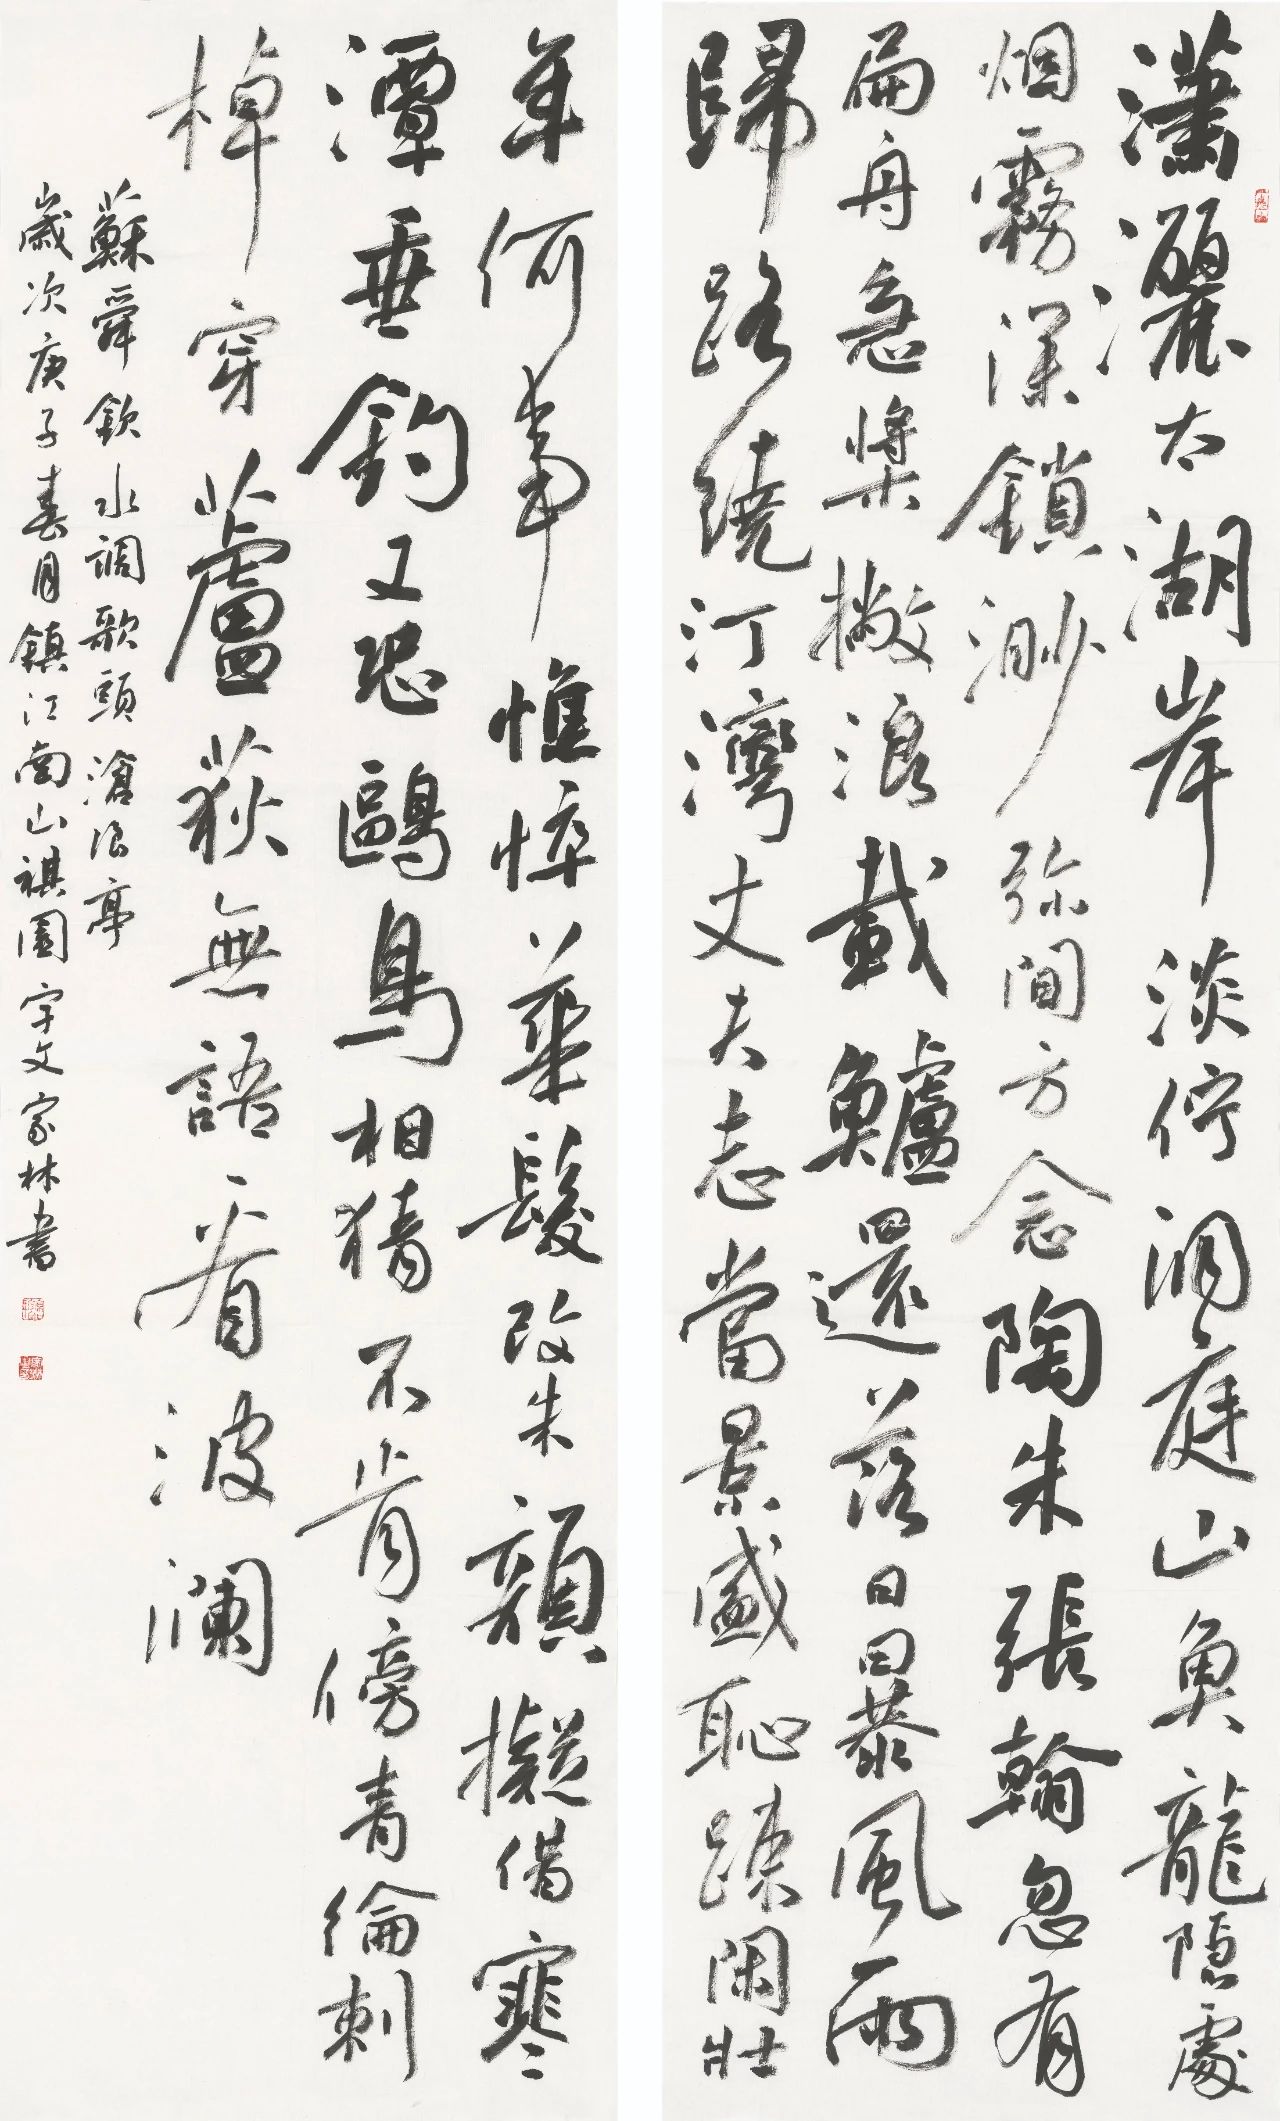 瀟灑太湖岸淡佇洞庭山魚龍隱處
烟霧深鎖渺弥間方念陶朱張翰忽有
扁舟急槳撇浪載鱸還落日暴風雨
歸路繞汀灣丈夫志當景盛恥疎閑壯
年何事憔悴華髮改朱顏擬借寒
潭垂釣又恐鷗鳥相猜不肯傍青綸刺
棹穿蘆荻無語看波瀾
蘇舜欽水調歌頭滄浪亭
歲次庚子春月鎮江南山祺園宇文家林書